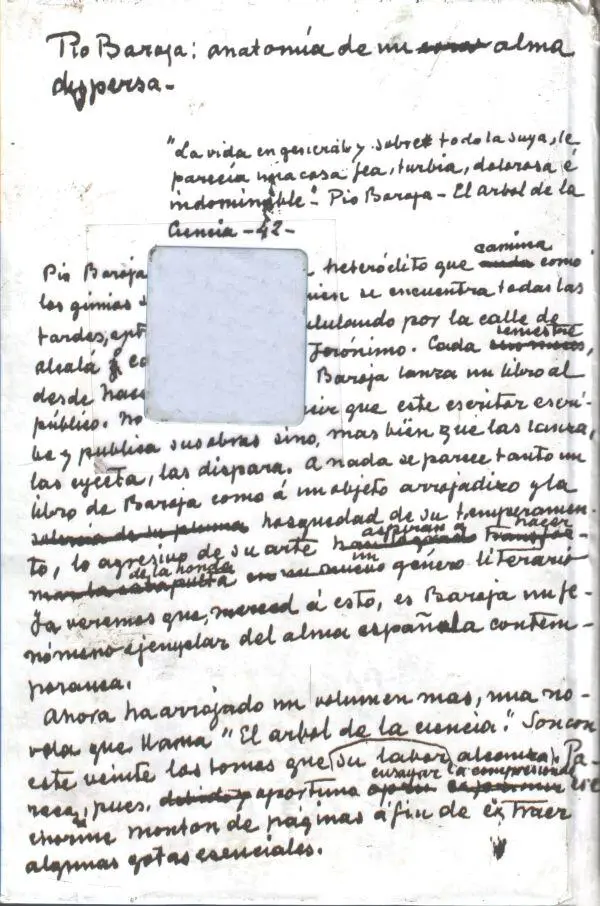 Pio Baroja: anatomía de un alma
dispersa.-
"La vida en general y sobre todo la suya, le
parecía una cosa fea, turbia, dolorosa é
indominable". Pio Baroja - El arbol de la
Ciencia - 42 -
Pio Baroja heteróclito que camina como
los gimios se encuentra todas las
tardes, ululando por la calle de
Alcalá ó Jerónimo. Cada semestre,
desde hace Baroja lanza un libro al
público. No que este escritor escri-
be y publica sus obras sino, mas bien que las lanza,
las eyecta, las dispara. A nada se parece tanto un
libro de Baroja como á un objeto arrojadizo y la
hosquedad de su temperamen-
to, lo agresivo de su arte aspiran a hacer
de la honda un género literario
Ya veremos que, merced á esto, es Baroja un fe-
nómeno ejemplar del alma española contem-
poranea.
Ahora ha arrojado un volumen mas, una no-
vela que llama "El arbol de la ciencia". Son con
este veinte los tomos que su labor alcanza. Pa-
rece, pues, oportuna ensayar la compresion de ese
enorme monton de páginas á fin de extraer
algunas gotas esenciales.